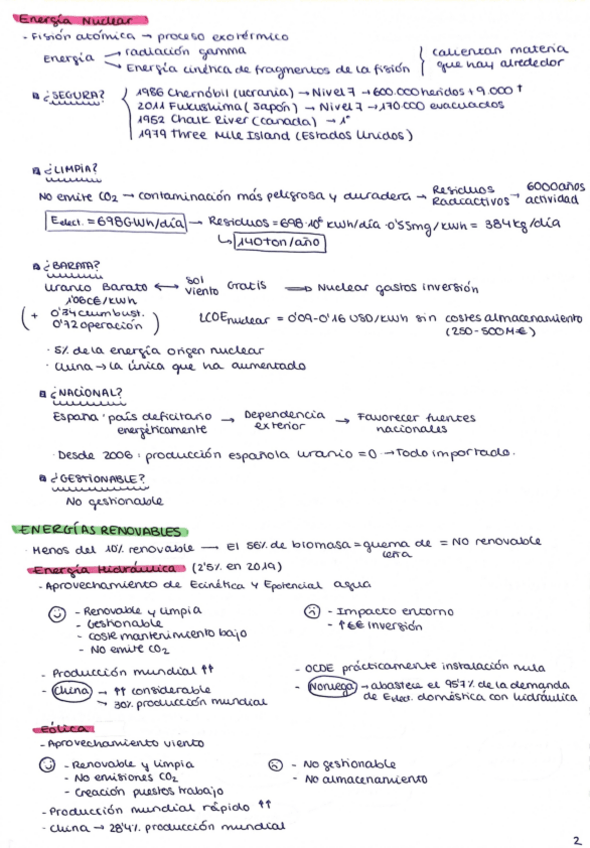 Energía Nuclear
- Fisión atómica → proceso exotérmico
Energía → radiación gamma
→ Energía cinética de fragmentos de la fisión
calientan materia
que hay alrededor
¿SEGURA?
1986 Chernóbil (Ucrania) → Nivel 7 → 600.000 heridos + 9.000 †
2011 Fukushima (Japón) → Nivel 7 → 170.000 evacuados
1952 Chalk River (Canadá) → 1º
1979 Three Mile Island (Estados Unidos)
¿LIMPIA?
No emite CO2 → contaminación más peligrosa y duradera → Residuos Radioactivos → 6000 años actividad
Eelect. = 698GWh/día → Residuos = 698·10⁶ KWh/día · 0'55mg/KWh = 384kg/día
↳ 140 ton/año
¿BARATA?
Uranio Barato ↔ sol viento Gratis ⇒ Nuclear gastos inversión
1'06c€/KWh
(+ 0'34 combust.
0'72 operación)
LCOE nuclear = 0'09-0'16 USD/KWh sin costes almacenamiento
(250-500M€)
· 5% de la energía origen nuclear
· China → la única que ha aumentado
¿NACIONAL?
España: país deficitario energéticamente → Dependencia exterior → Favorecer fuentes nacionales
· Desde 2006: producción española uranio = 0 → Todo importado.
¿GESTIONABLE?
No gestionable
ENERGÍAS RENOVABLES
· Menos del 10% renovable → El 56% de biomasa = quema de leña = NO renovable
Energía Hidráulica (2'5% en 2019)
- Aprovechamiento de Ecinética y Epotencial agua
- Renovable y limpia
- Gestionable
- Coste mantenimiento bajo
- No emite CO2
- Impacto entorno
- ↑€€ Inversión
- Producción mundial ↑↑
- China → ↑↑ considerable
→ 30% producción mundial
- OCDE prácticamente instalación nula
- Noruega → abastece el 95'7% de la demanda
de Eelect. doméstica con hidráulica
Eólica
- Aprovechamiento viento
- Renovable y limpia
- No emisiones CO2
- Creación puestos trabajo
- No gestionable
- No almacenamiento
- Producción mundial rápido ↑↑
- China → 28'4% producción mundial
2